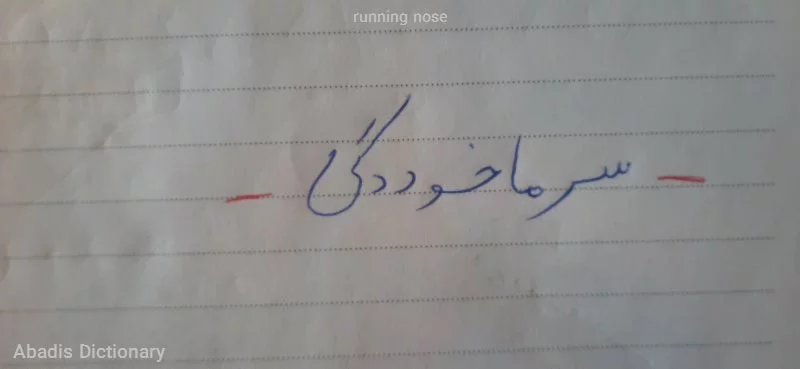 running nose
- سرماخوردگی -
Abadis Dictionary